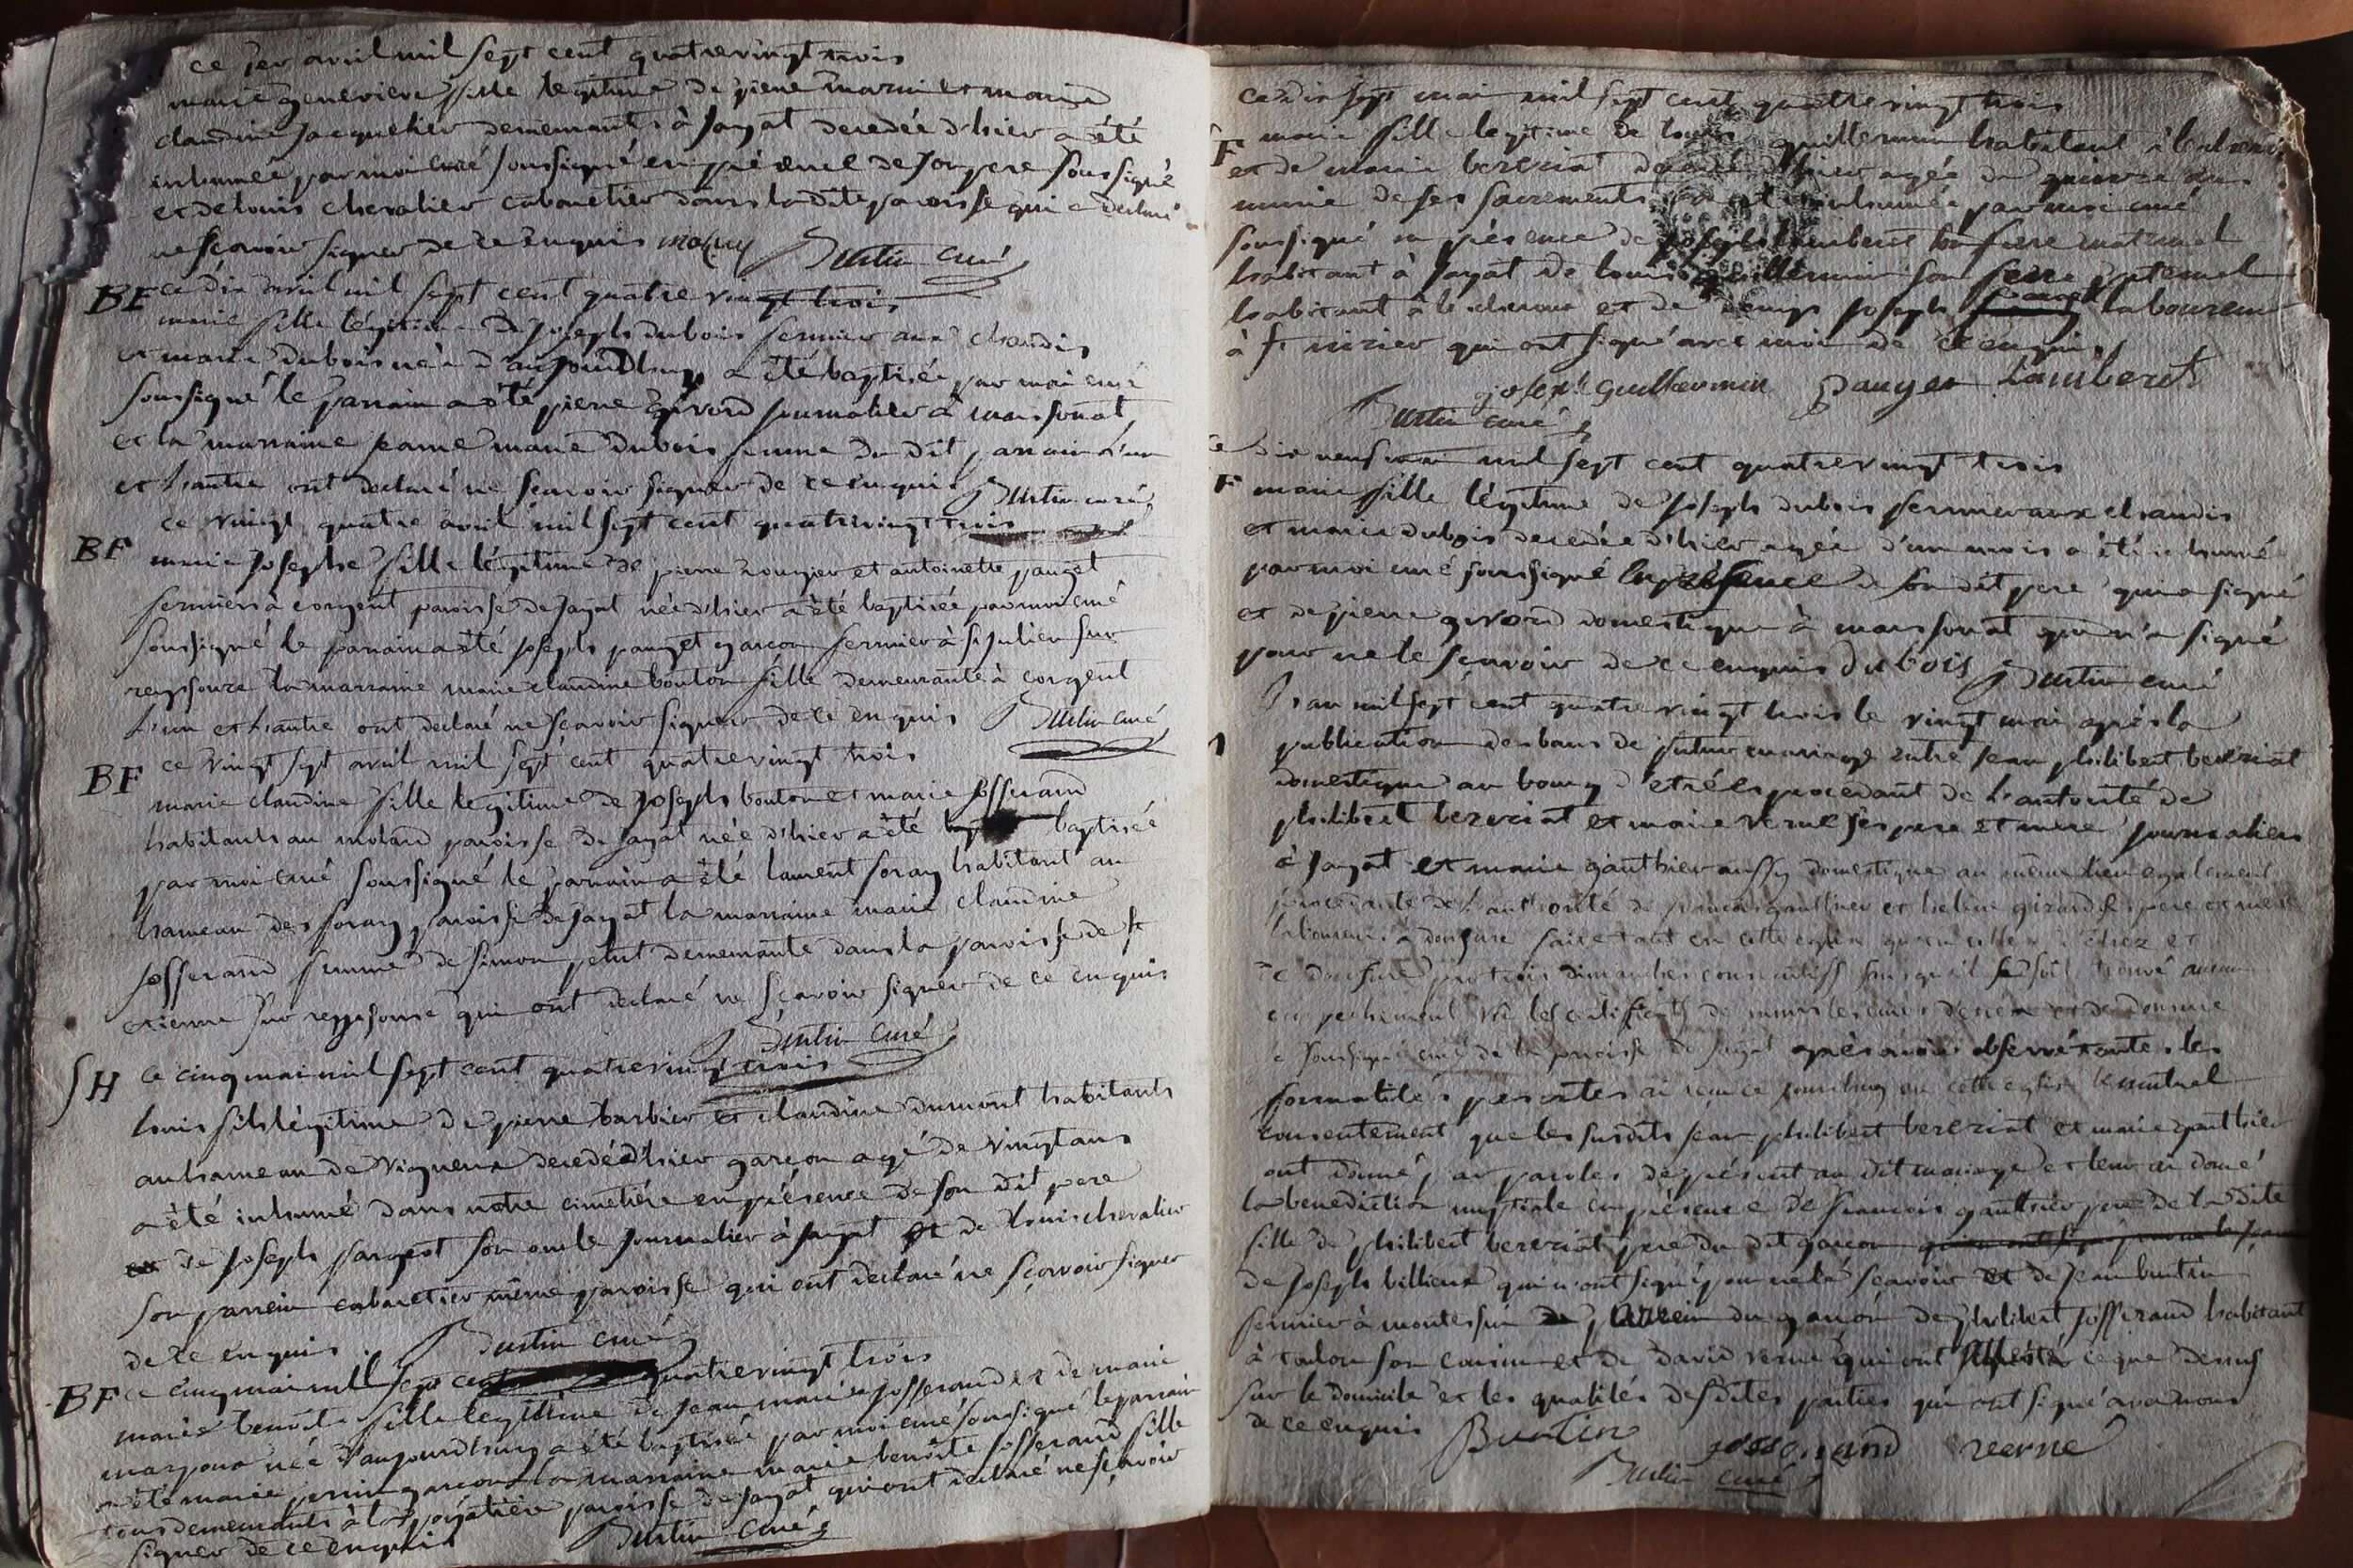 ce 1er avril mil sept cent quatrevingt trois
marie genevieve fille legitime de piene et marie
claudine jacquetier demeurants à jayat decedée d'hier a été
inhumée par moi curé soussigné en présence de son pere soussigné
et de louis chevalier cabaretier dans la dite paroisse qui a declaré
ne sçavoir signer de ce enquis Burtin curé
BF ce dix avril mil sept cent quatre vingt trois
marie fille légitime de joseph dubois fermier aux chaudis
et marie dubois née d'aujourdhuy a été baptisée par moi curé
soussigné le parrain a été piene givord journalier à marsonat
et la marraine marie dubois femme du dit parrain l'un
et l'autre ont declaré ne sçavoir signer de ce enquis Burtin curé
ce vingt quatre avril mil sept cent quatrevingt trois
BF marie josephe fille légitime de pierre rougier et antoinette pauget
fermiers à corgent paroisse de jayat née d'hier a été baptisée par moi curé
soussigné le parrain a été joseph pauget garçon fermier à st julien sur
reyssouze la marraine marie claudine bouton fille demeurante à corgent
l'un et l'autre ont declaré ne sçavoir signer de ce enquis Burtin curé
BF ce vingt sept avril mil sept cent quatrevingt trois
marie claudine fille legitime de joseph bouton et marie josserand
habitants au molard paroisse de jayat née d'hier a été baptisée
par moi curé soussigné le parrain a été laurent foray habitant au
hameau des foray paroisse de jayat la marraine marie claudine
josserand femme de simon petit demeurante dans la paroisse de st
etienne sur reyssouze qui ont declaré ne sçavoir signer de ce enquis
Burtin curé
SH ce cinq mai mil sept cent quatrevingt trois
louis fils légitime de pierre barbier et claudine dumont habitants
au hameau de vigneux decedé d'hier garçon agé de vingt ans
a été inhumé dans notre cimetiére en présence de son dit pere
de joseph son oncle journalier à jayat et de louis chevalier
son parrein cabaretier même paroisse qui ont declaré ne sçavoir signer
de ce enquis Burtin curé
BF ce cinq mai mil sept cent quatrevingt trois
marie benoite fille legitime de jean marie josserand et de marie
née d'aujourdhuy a été baptisée par moi curé soussigné le parrain
a été marie perrin garçon la marraine marie benoite josserand fille
tous demeurants à la paroisse de jayat qui ont declaré ne sçavoir
signer de ce enquis Burtin curé
ce dix sept mai mil sept cent quatre vingt trois
F marie fille legitime de louis guillermin habitant à
et de marie bereziat decedée d'hier agée de quinze ans
munie de ses sacrements a été inhumée par moi curé
soussigné en présence de joseph lambert son frere maternel
habitant à jayat de louis guillermin son frere paternel
habitant à et de joseph laboureur
à st nizier qui ont signé avec moi de ce enquis
joseph guillermin pauget lambert
Burtin curé
ce dix neuf mai mil sept cent quatrevingt trois
F marie fille légitime de joseph dubois fermier aux chaudis
et marie dubois decedée d'hier agée d'un mois a été inhumé
par moi curé soussigné en présence de son dit pere qui a signé
et de pierre givord domestique à marsonat qui n'a signé
pour ne le sçavoir de ce enquis dubois Burtin curé
L'an mil sept cent quatre vingt trois le vingt mai après la
publication des bans de futur mariage entre jean philibert bereziat
domestique au bourg d'etréz procedant de l'autorité de
philibert bereziat et marie verne ses pere et mere journaliers
à jayat et marie gauthier aussy domestique au même lieu egalement
procedante de l'authorité de françois gauthier et helene girard ses pere et mere
à donsure faite tant en cette eglise qu'en celle d'etréz et
de donsure par trois dimanches consecutifs sans qu'il se soit trouvé aucun
empechement vû les certificats de messieurs les curés d'etréz et de donsure
je soussigné curé de la paroisse de jayat après avoir observé toutes les
formalités prescrites ai reçu ce jourdhuy en cette eglise le mutuel
consentement que les susdits jean philibert bereziat et marie gauthier
ont donné par paroles de présent au dit mariage et leur ai donné
la benediction nuptiale en présence de francois gauthier pere de la dite
fille de philibert bereziat pere du dit garçon
de joseph billieux qui n'ont signé pour ne le sçavoir et de jean burtin
fermier à montessuy parrein du garçon de philibert josserand habitant
à toulon son cousin et de david verne qui ont attesté ce que dessus
sur le domicile et les qualités desdites parties qui ont signé avec nous
de ce enquis Burtin josserand verne
Burtin curé